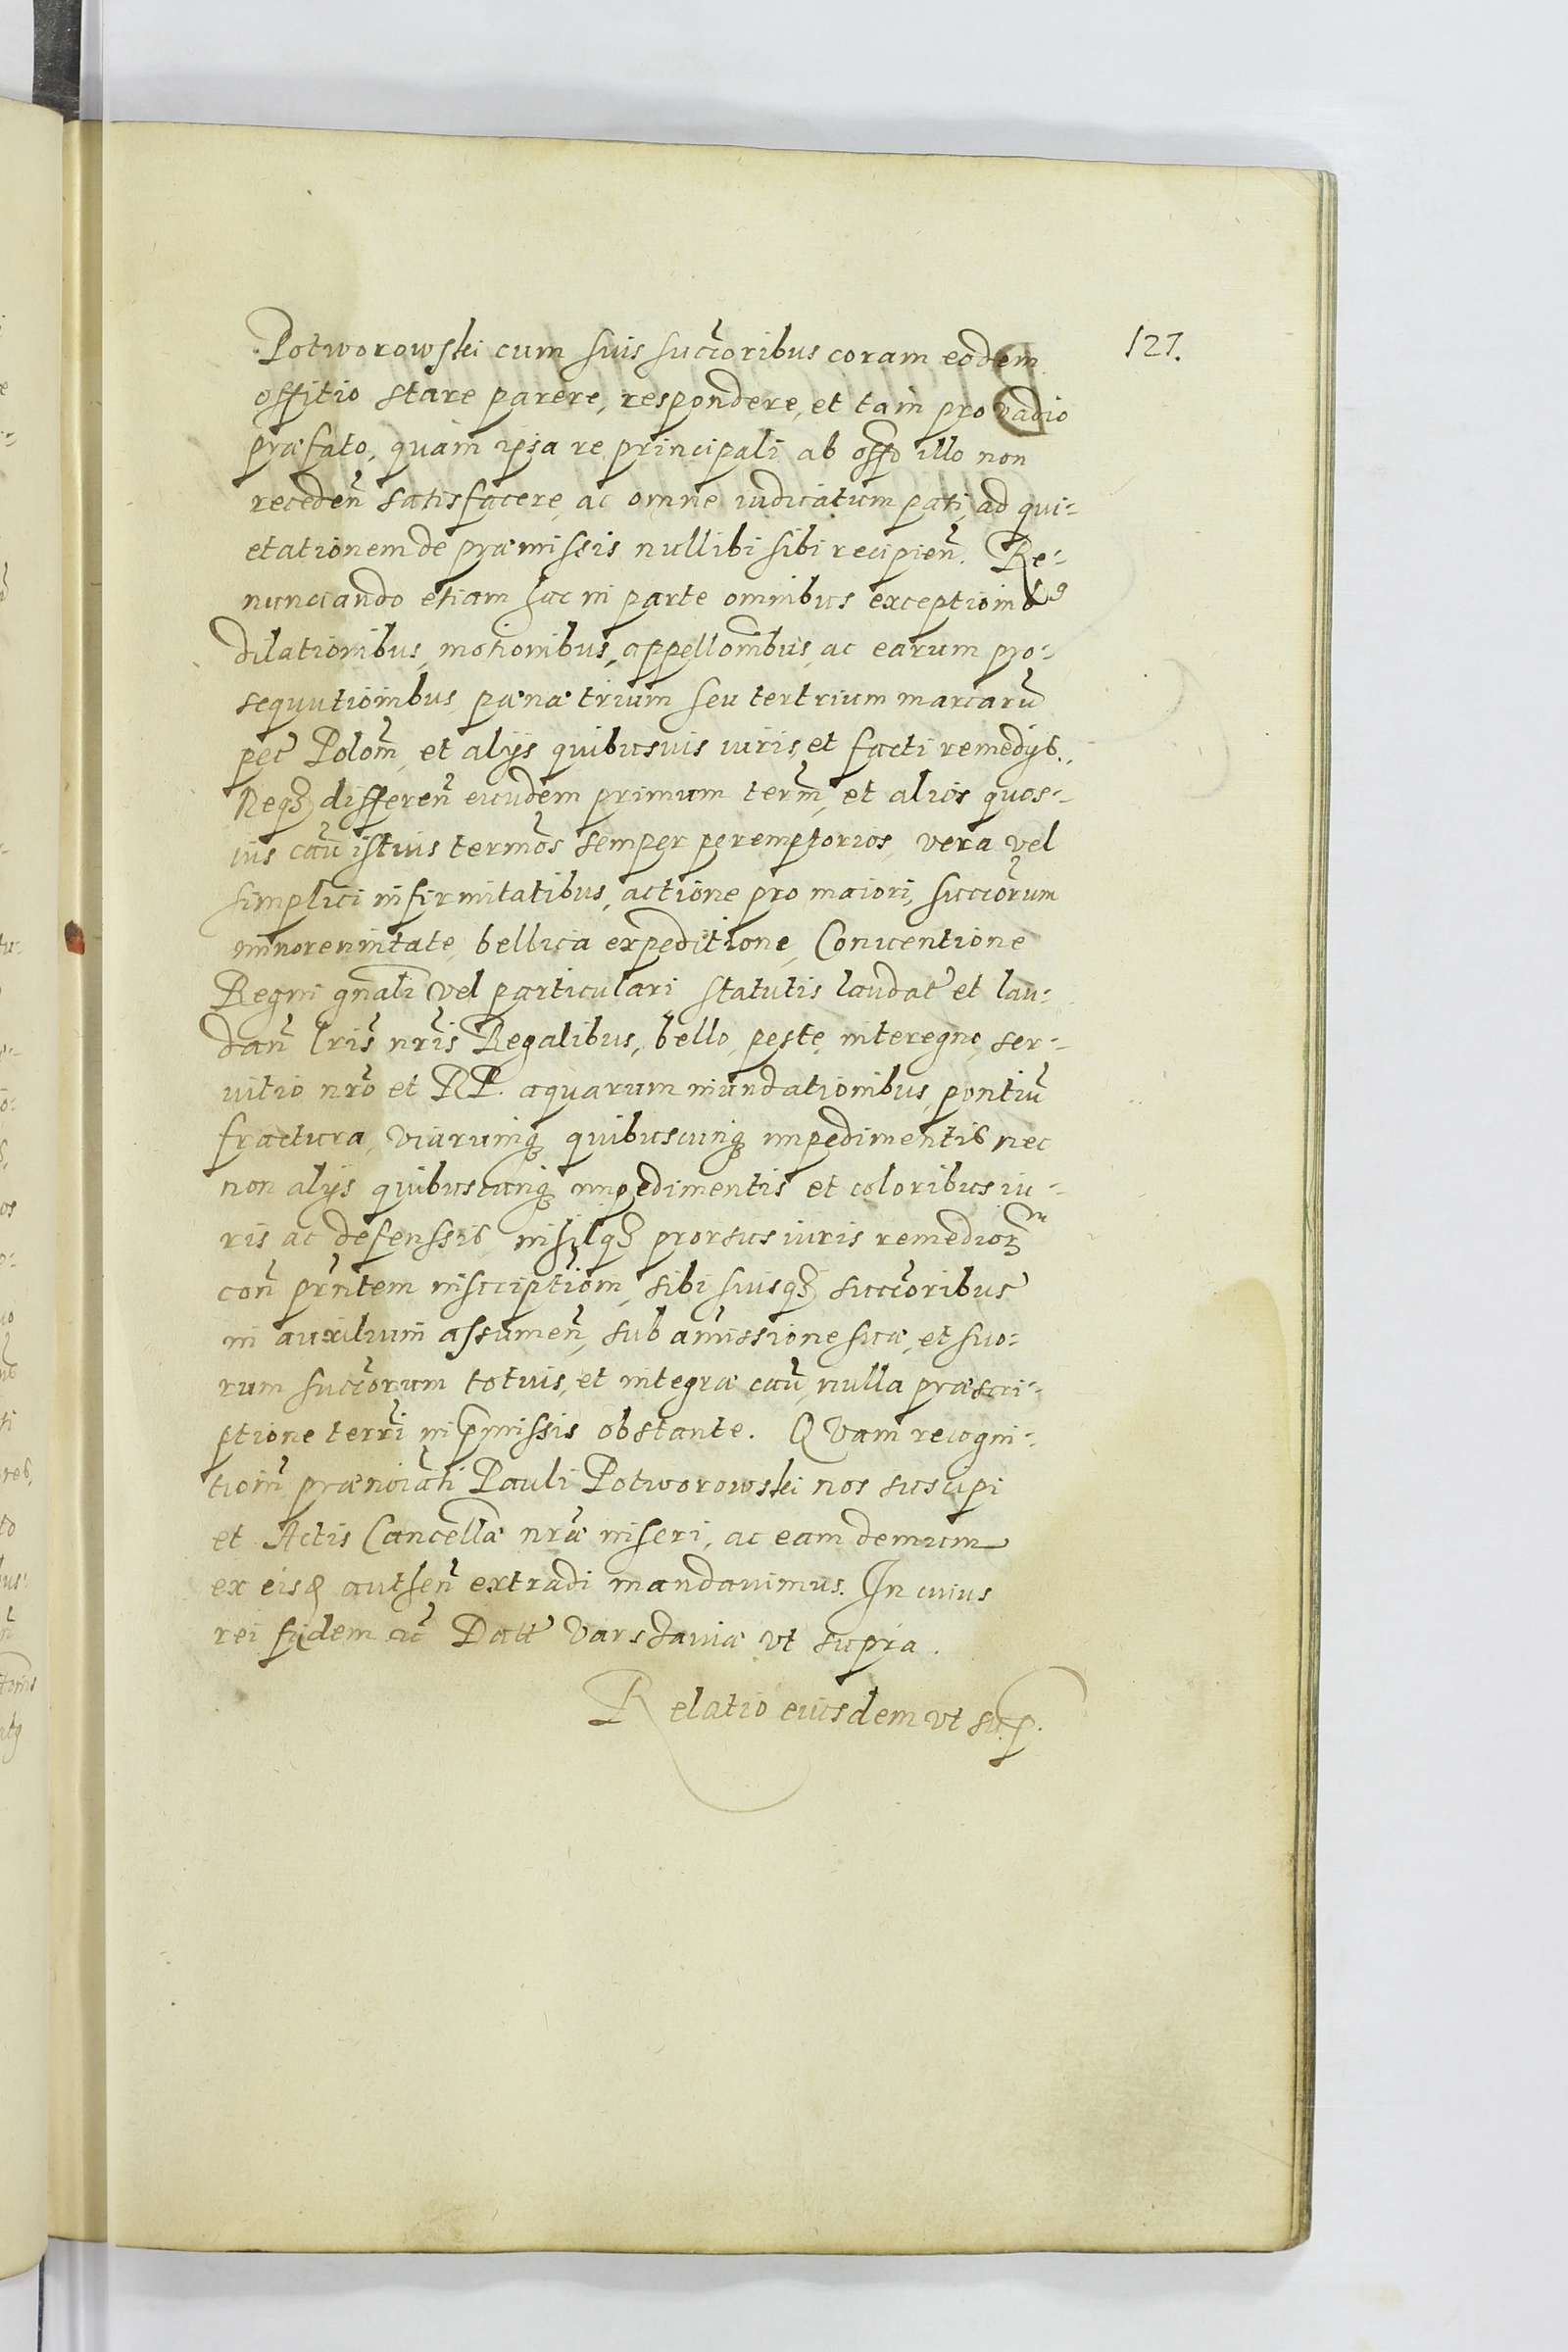 127.
Potworowski cum suis succoribus coram eodem
offitio stare parere, respondere, et tam pro vadio
præfato, quam ipsa re principali ab offo illo non
receden̄ satisfacere, ac omne iudicatum pati, ad qui-
etationem de præmissis nullibi sibi recipien̄. Re-
nunciando etiam hac in parte omnibus exceptionibꝰ
dilationibus, motionibus, appellonibus, ac earum pro-
sequutionibus pænæ trium seu ter trium marcarū
pec Polom̄, et alijs quibusuis iuris, et facti remedijs.,
Neqꝫ differen̄ eiusdem primum term̄, et alios quos-
uis cau istius termōs semper peremptorios, vera vel
simplici infirmitatibus, actione pro maiori, succōrum
minorennitate, bellica expeditione, Conuentione
Regni gnāli vel particulari statutis laudat et lau-
dan̄ Lris̄ nris̄ Regalibus, bello, peste, interegno, ser-
uitio nrō et RP. aquarum inundationibus, pontiū
fractura, viarumqꝫ quibuscunqꝫ impedimentis nec
non alijs quibuscunqꝫ impedimentis et coloribus iu-
ris ac defenssis nihilqꝫ prorsus iuris remediorꝫ
con̄ prn̄tem inscriptiom̄, sibi suisqꝫ succōribus
in auxilium assumen̄, sub amissione suæ, et suo-
rum succōrum totius, et integræ cau, nulla præscri-
ptione terrī in pmissis obstante. QVam recogni-
tiom̄ prænoiāti Pauli Potworowski nos suscipi
et Actis Cancellæ nræ inseri, ac eam demum
ex eisd authen̄ extradi mandauimus. In cuius
rei fidem etc̄ Datt Varschauiæ vt supra.
Relatio eiusdem vt sup.